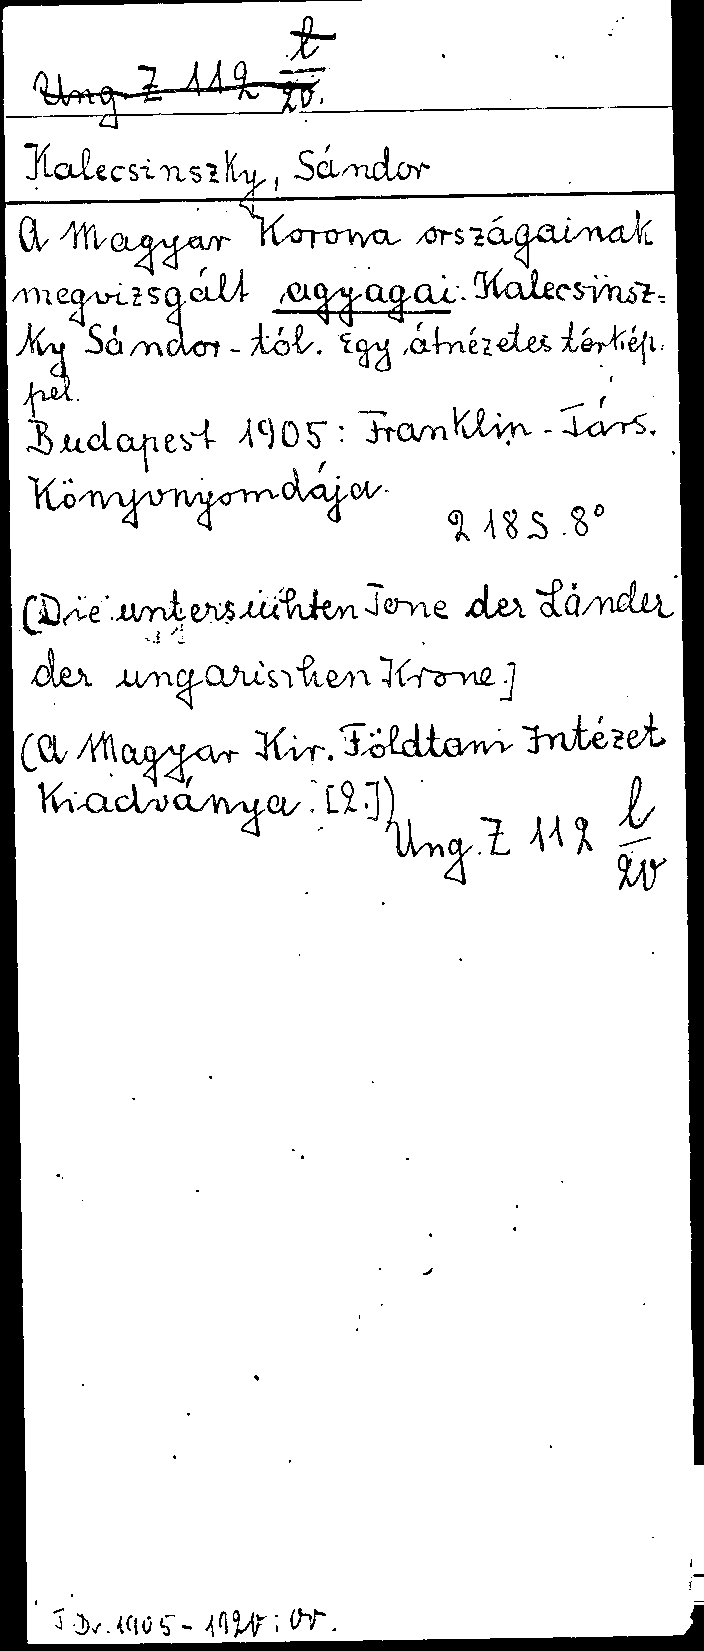 Ung. Z 112 l/20.
Kalecsinszky, Sándor
A Magyar Korona országainak
megvizsgált agyagai. Kalecsinsz-
ky Sándor-tól. Egy átnézetes térkép-
pel.
Budapest 1905: Franklin-Társ.
Könyvnyomdája.
218 S. 8°
[Die untersuchten Tone der Länder
der ungarischen Krone.]
(A Magyar Kir. Földtani Intézet
Kiadványa. [2.])
Ung. Z 112 l/20
1905-1920: